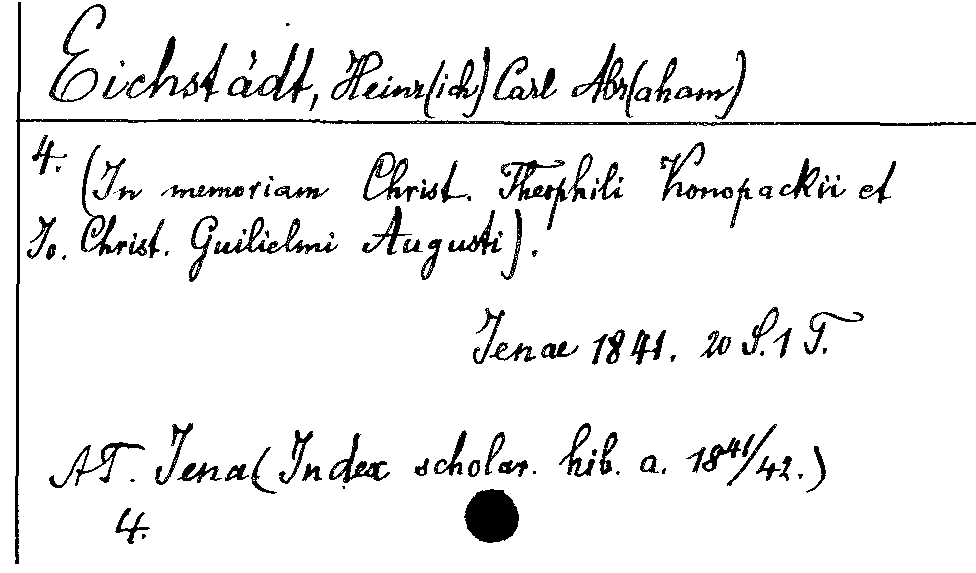 Eichstädt, Heinr(ich) Carl Abr(aham)
4. (In memoriam Christ. Theophili Konopackii et
Jo. Christ. Guilielmi Augusti).
Jenae 1841. 20 S. 1 T.
AT. Jena (Index scholar. hib. a. 1841/42.)
4.